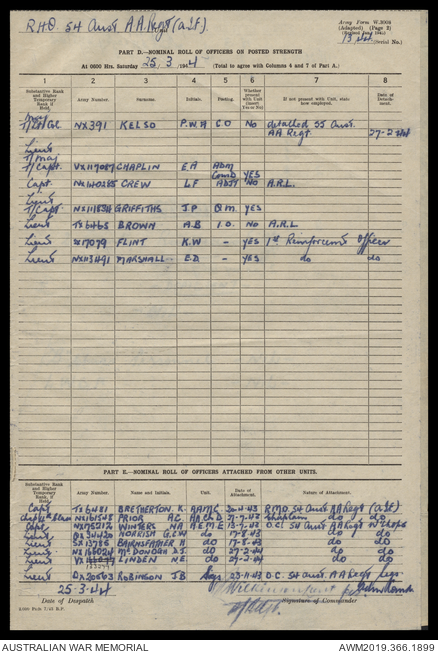 RHQ 54 Aust AA Regt (AIF)
Unit
Army Form W.3009
(Adapted) (Page 2)
(Serial No.)
PART D.—NOMINAL ROLL OF OFFICERS ON POSTED STRENGTH
At 0600 Hrs. Saturday 25/3/1944 (Total to agree with Columns 6 and 7 of Part A.)
1 2 3 4 5 6 7 8
Substantive Rank and Higher Temporary Rank if Held. Army Number. Surname. Initials. Posting. Whether present with Unit (Insert Yes or No) If not present with Unit, state how employed. Date of Detachment.
T/Lt Col. NX391 KELSO P.W.A C.O No detached 55 Aust.
AA Regt 27-2-44
Lieut
T/Maj
T/Capt. VX117087 CHAPLIN EA ADM
Comd YES
Capt. NX140285 CREW LF ADJT No A.R.L.
Lieut
T/Capt NX111834 GRIFFITHS J.P Q.M YES
Lieut TX6465 BROWN A.B I.O. No A.R.L
Lieut SX7079 FLINT K.W - YES 1st Reinforcement Officer
Lieut NX113491 MARSHALL E.D. - YES do do
PART E.—NOMINAL ROLL OF OFFICERS ATTACHED FROM OTHER UNITS.
Substantive Rank and Higher Temporary Rank, if Held. Army Number. Name and Initials. Unit. Date of Attachment. Nature of Attachment.
Capt TX6481 BRETHERTON K. AAMC 20-4-43 RMO 54 Aust AA Regt (AIF)
PRIOR AC. Chaplain do do
Capt WINTERS NA AEME 13-7-43 O.C. 54 Aust AA Regt W'Shops
Lieut NORRISH G.E.W do 17-8-43 do do
Lieut SX13786 BAIRNSFATHER H do 17-8-43 do do
Lieut McDONAGH D.J. do 27-2-44 do do
Lieut LINDEN N.E. do 27-2-44 do do
Lieut ROBINSON J.B Sigs 23-11-43 O.C. 54 Aust AA Regt Sigs
25-3-44
Date of Despatch
Signature of Commander
AUSTRALIAN WAR MEMORIAL
AWM2019.366.1899